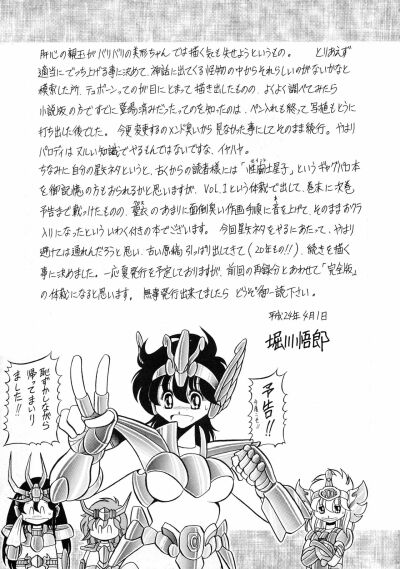 肝心の親玉がバリバリの異形ちゃんでは描く気も失せようというもの。 とりあえず
適当にでっち上げる事に決めて、神話に出てくる怪物の中からそれらしいのがないかなと
検索した所、テュポーンってのが目にとまって描き出したものの、よくよく調べてみたら
小説版の方ですでに登場済みだったってのを知ったのは、ペン入れも終って写植もとうに
打ち出した後でした。今更変更するのメンド臭いから見なかった事にしてそのまま続行。やはり
パロディはヌルい知識でやるもんではないですな、イヤハヤ。
ちなみに自分の星矢ネタというと、古くからの読者様には「性闘士星子」というギャグパロ本
を御記憶の方もおられるかと思いますが、VOL.1という体裁で出して、巻末に次巻
予告まで載っけたものの、聖衣のあまりに面倒臭い作画手順に音を上げて、そのままおクラ
入りになったといういわく付きの本でございます。今回星矢ネタをやるにあたって、やはり
避けては通れんだろうと思い、古い原稿引っぱり出してきて(20年もの!!)、続きを描く
事に決めました。一応夏発行を予定しておりますが、前回の再録分とあわせて「完全版」
の体裁になると思います。無事発行出来てましたらどうぞ御一読下さい。
平成24年4月1日
堀川悟郎
予告!!
恥ずかしながら
帰ってまいり
ました!!